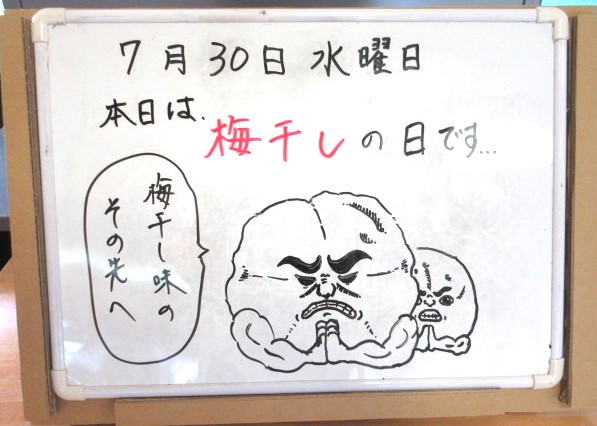 7月30日 水曜日
本日は、
梅干しの日です…
梅干し味の
その先へ